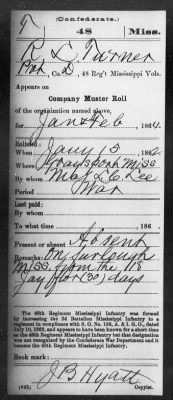 T
(Confederate.)
48 Miss.
R. L. Turner
Pvt, Co. D, 48 Reg't Mississippi Vols.
Appears on
Company Muster Roll
of the organization named above,
for Jan & Feb, 1864.
Enlisted:
When Jany 13, 1862.
Where Grays Port Miss
By whom Maj L C Lee
Period War
Last paid:
By whom
To what time , 186 .
Present or absent Absent
Remarks: On furlough
Miss. from the 11th
Jany for (30) days
The 48th Regiment Mississippi Infantry was formed
by increasing the 2d Battalion Mississippi Infantry to a
regiment in compliance with S. O. No. , A. & I. G. O., dated
and appears to have been known for a short time
as the Regiment Mississippi Infantry, but this designation
was not recognized by the Confederate War Department and it
became the 48th Regiment Mississippi Infantry.
Book mark:
J B Hyatt
(642) Copyist.